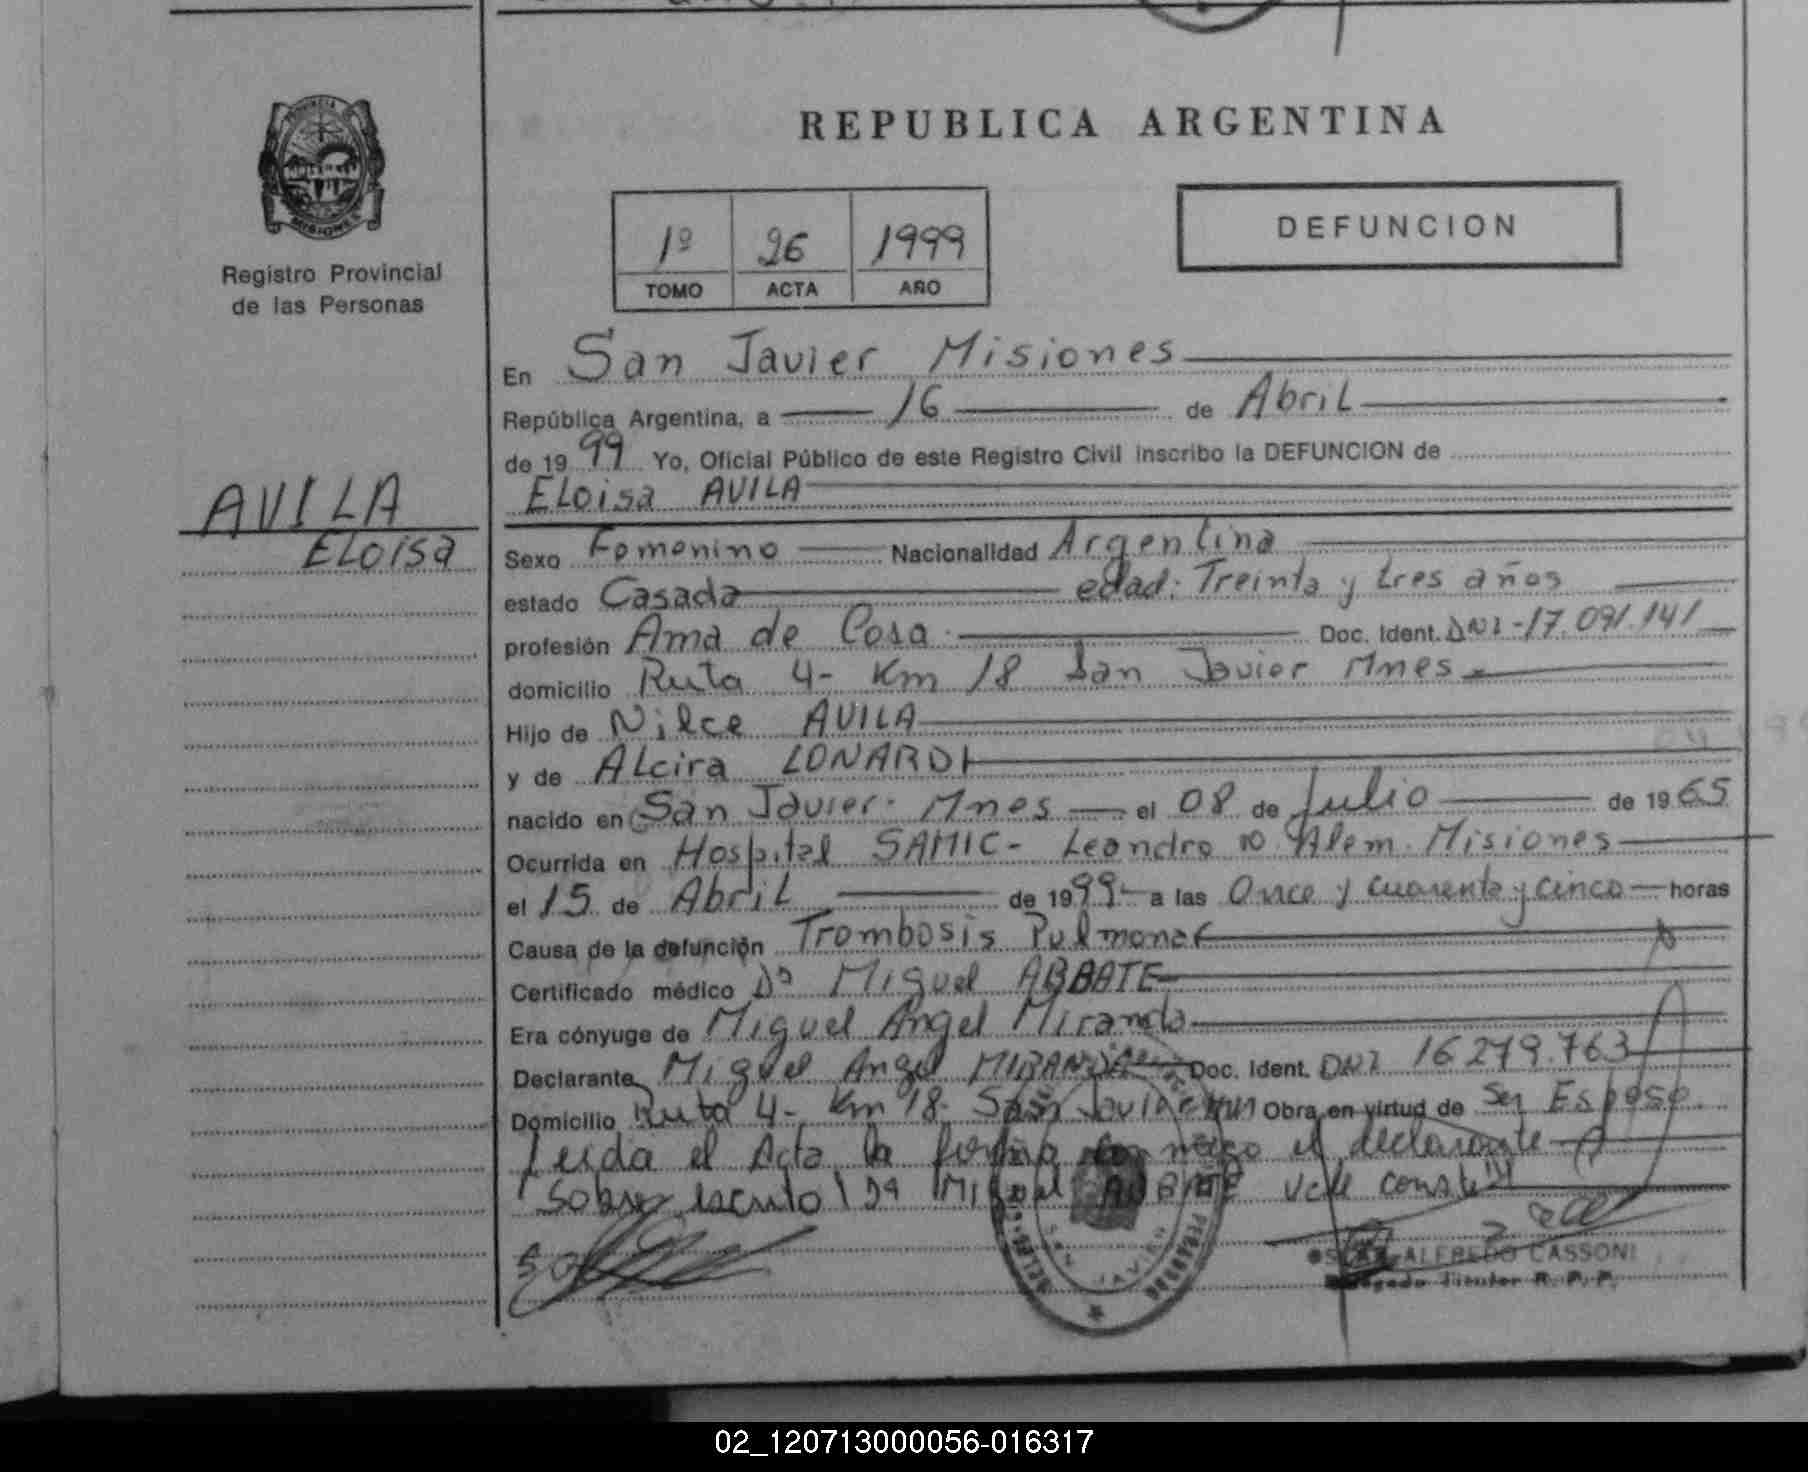 REPUBLICA ARGENTINA
PROVINCIA DE
MISIONES
Registro Provincial
de las Personas
1º 26 1999
TOMO ACTA AÑO
DEFUNCION
AVILA
ELoisa
En San Javier Misiones
República Argentina, a 16 de Abril
de 1999 Yo, Oficial Público de este Registro Civil inscribo la DEFUNCION de
ELoisa AVILA
Sexo Femenino Nacionalidad Argentina
estado Casada edad: Treinta y tres años
profesión Ama de Casa. Doc. Ident. DNI-17.091.141
domicilio Ruta 4- Km 18 San Javier Mnes
Hijo de Nilce AVILA
y de ALcira LONARDI
nacido en San Javier. Mnes el 08 de Julio de 1965
Ocurrida en Hospital SAMIC- Leandro N. Alem. Misiones
el 15 de Abril de 1999- a las Once y cuarenta y cinco horas
Causa de la defunción Trombosis Pulmonar
Certificado médico Dº Miguel ABBATE
Era cónyuge de Miguel Angel Miranda
Declarante Miguel Angel MIRANDA Doc. Ident. DNI 16.279.763
Domicilio Ruta 4- Km 18- San Javier Obra en virtud de Ser Esposo.
Leida el Acta la firma conmigo el declarante
Sobre escrito Miguel ABBATE Vale
SAN JAVIER
ALFREDO CASSONI
Titular R. P. P.
02_120713000056-016317